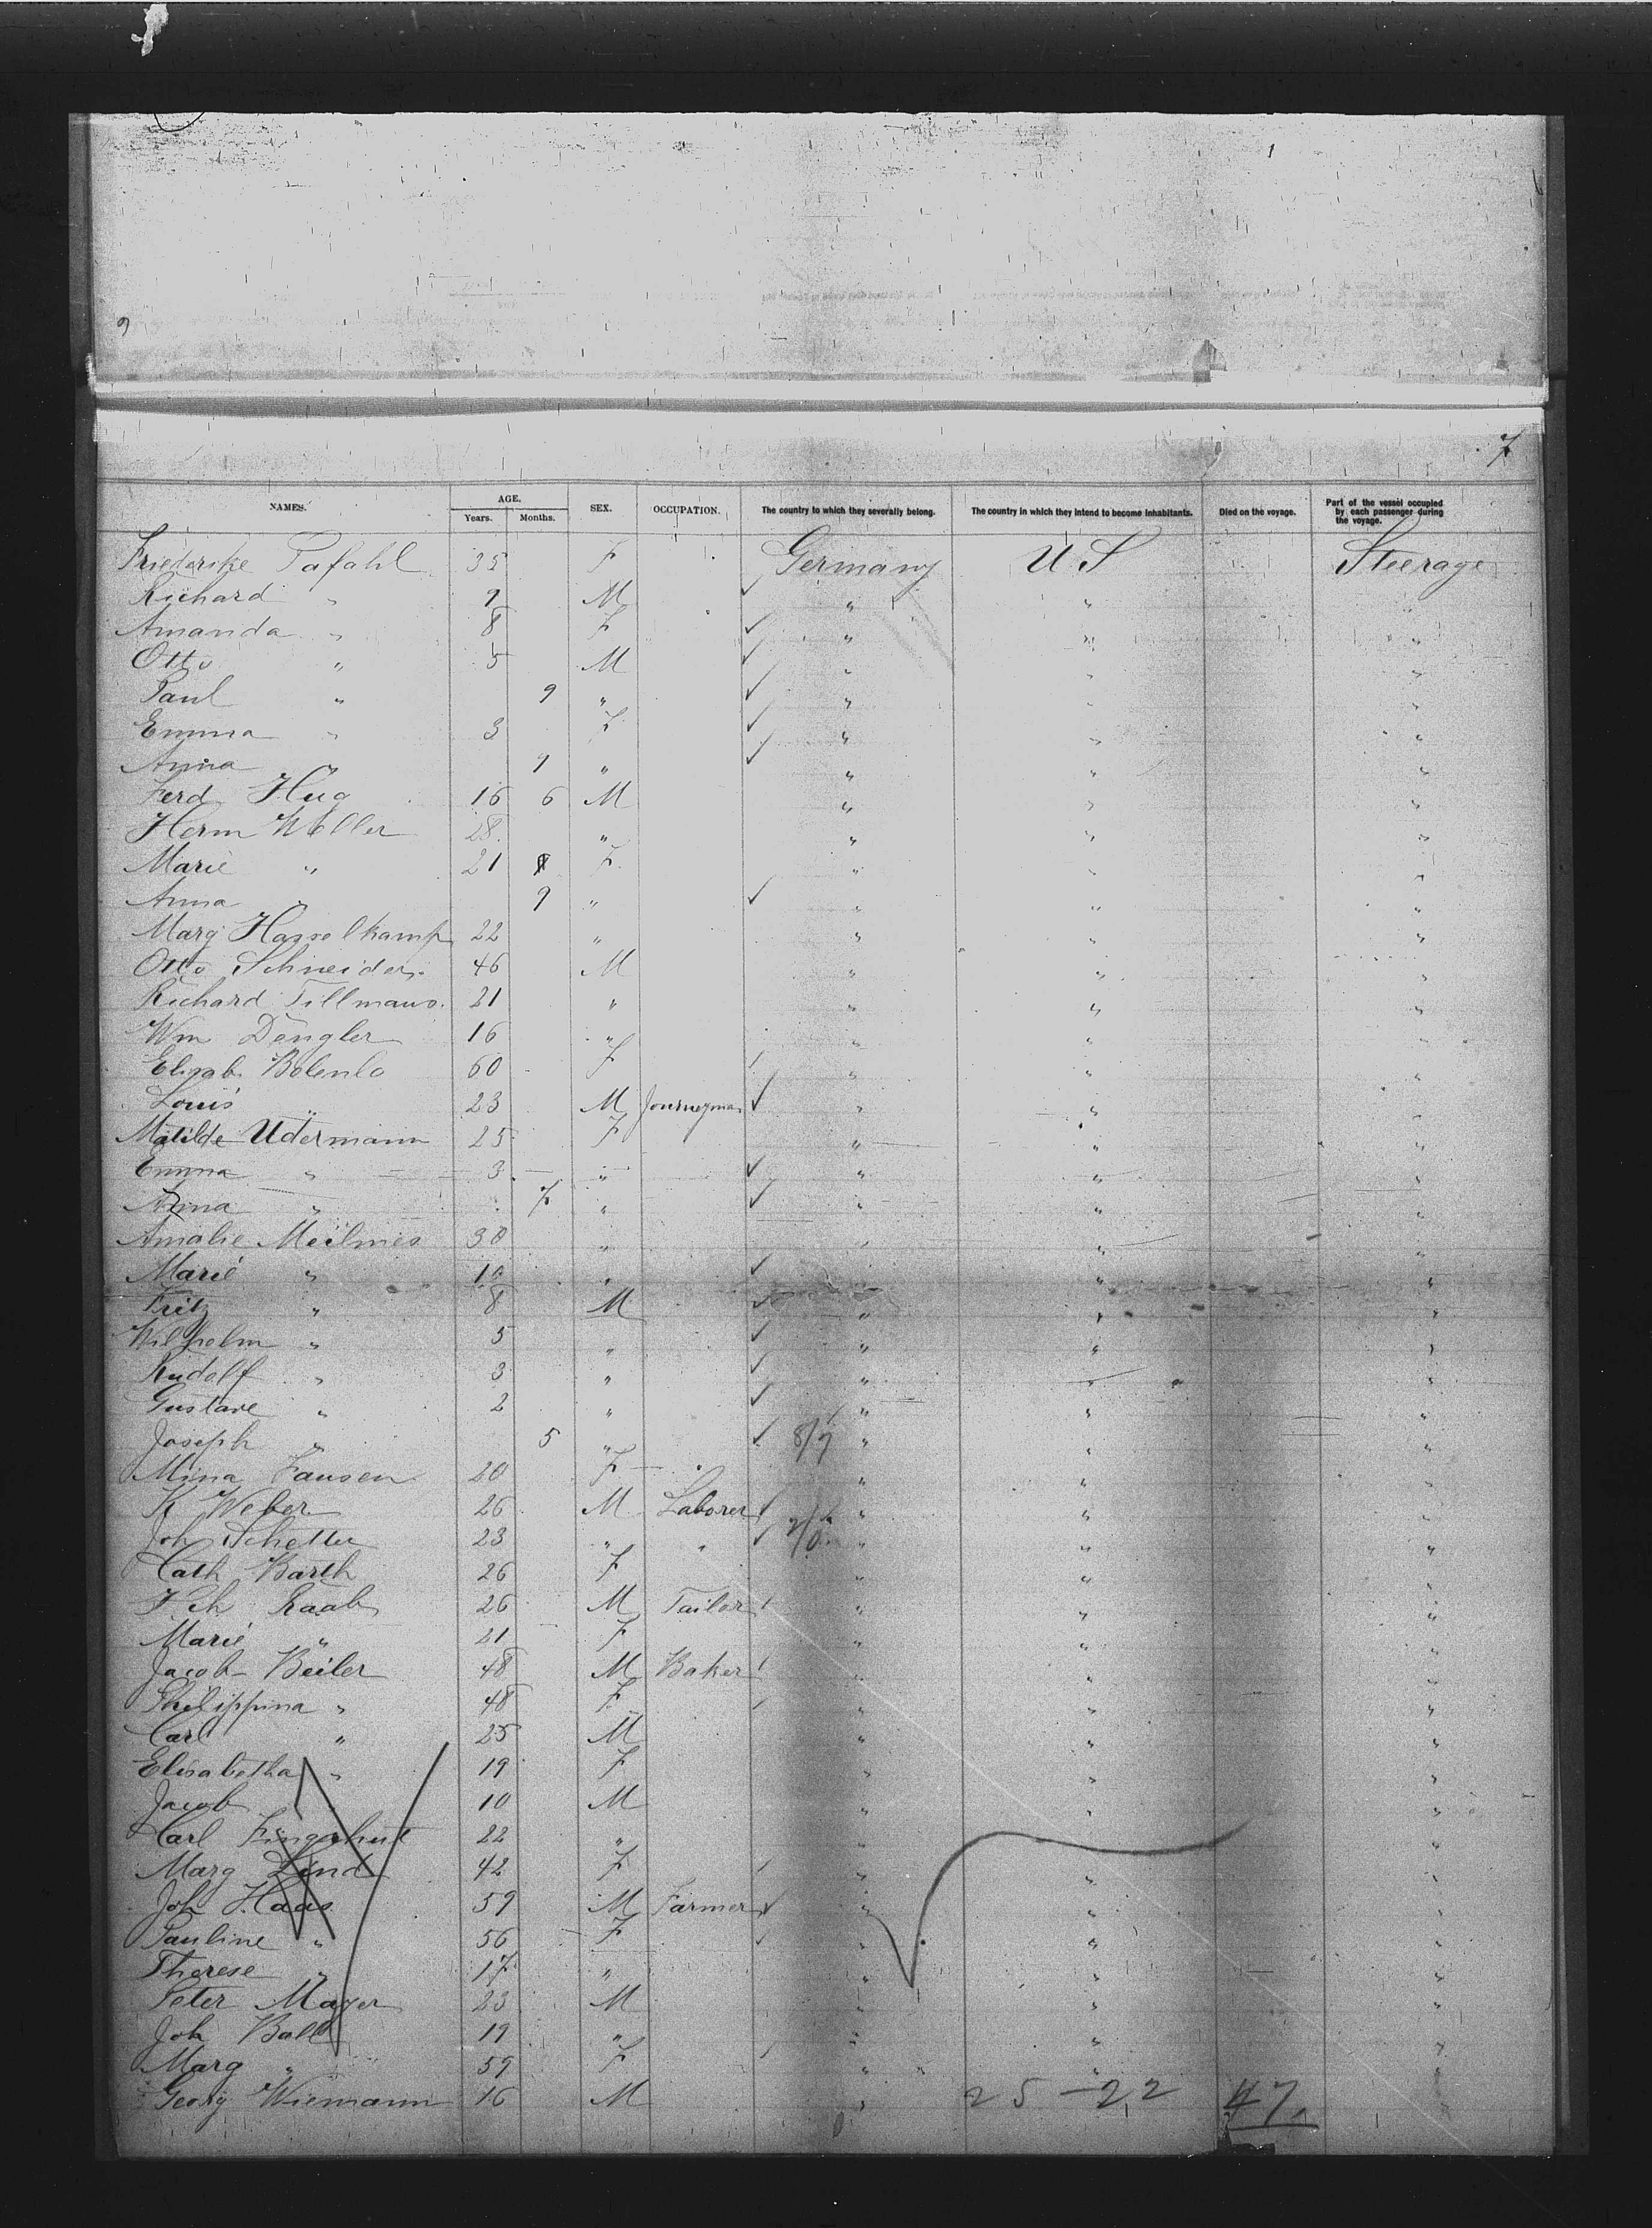 7
NAMES. AGE. Years. Months. SEX. OCCUPATION. The country to which they severally belong. The country in which they intend to become inhabitants. Died on the voyage. Part of the vessel occupied by each passenger during the voyage.
Friederike Pafahl 35 F Germany U S Steerage
Richard " 9 M " " "
Amanda " 8 F " " "
Otto " 5 M " " "
Paul " 9 " " " "
Emma " 3 F " " "
Anna " 9 " " " "
Ferd Hug 16 6 M " " "
Herm Weller 28 " " " "
Marie " 21 F " " "
Anna " 9 " " " "
Marg Hasselkamp 22 " " " "
Otto Schneider 46 M " " "
Richard Tillmans 21 " " " "
Wm Dengler 16 " " " "
Elisab 60 F " " "
Louis " 23 M Journeyman " " "
Matilde Udermann 25 F " " "
Emma " 3 " " " "
Anna " 7 " " " "
Amalie Meilmes 38 " " " "
Marie " 10 " " " "
Fritz " 8 M " " "
Wilhelm " 5 " " " "
Rudolf " 3 " " " "
Gustave " 2 " " " "
Joseph " 5 " 8/9 " " "
Mina Jansen 20 F " " "
K Weber 26 M Laborer " " "
Joh Schetter 23 " " " " "
Cath Barth 26 F " " "
Raab 26 M Tailor " " "
Marie " 21 F " " "
Jacob Beiler 48 M Baker " " "
Philippina " 48 F " " "
Carl " 25 M " " "
Elisabetha " 19 F " " "
Jacob " 10 M " " "
Carl Fingerhut 22 " " " "
Marg Lind 42 F " " "
Joh Haas 59 M Farmer " " "
Pauline " 56 F " " "
Therese " 17 " " " "
Peter Mayer 23 M " " "
Joh Ball 19 " " " "
Marg " 59 F " " "
Georg Wiemann 16 M " 25-22 47